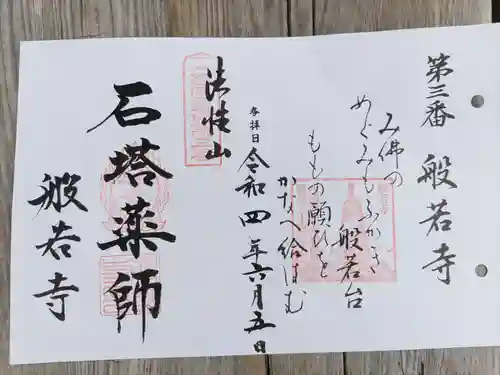 第三番 般若寺
み佛の
めぐみもふかき
般若台
ももの願ひを
かなへ給はむ
奉拝日
令和四年六月五日
法性山
石塔薬師
般若寺